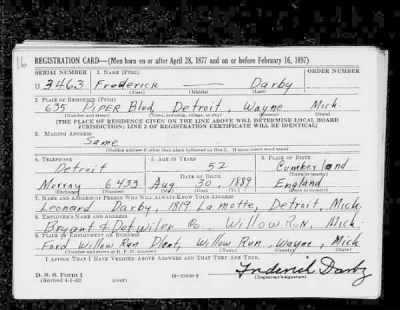 16
REGISTRATION CARD—(Men born on or after April 28, 1877 and on or before February 16, 1897)
SERIAL NUMBER 1. NAME (Print) ORDER NUMBER
U 3463 Frederick — Darby
(First) (Middle) (Last)
2. PLACE OF RESIDENCE (Print)
635 PIPER Blvd, Detroit, Wayne Mich.
(Number and street) (Town, township, village, or city) (County) (State)
[THE PLACE OF RESIDENCE GIVEN ON THE LINE ABOVE WILL DETERMINE LOCAL BOARD
JURISDICTION; LINE 2 OF REGISTRATION CERTIFICATE WILL BE IDENTICAL]
3. MAILING ADDRESS
Same
[Mailing address if other than place indicated on line 2. If same insert word same]
4. TELEPHONE 5. AGE IN YEARS 6. PLACE OF BIRTH
Detroit 52 Cumberland
DATE OF BIRTH
Murray 6433 Aug. 30, 1889 England
7. NAME AND ADDRESS OF PERSON WHO WILL ALWAYS KNOW YOUR ADDRESS
Leonard Darby, 1819 Lamotte, Detroit, Mich.
8. EMPLOYER'S NAME AND ADDRESS
Bryant & Detwiler Co. Willow Run, Mich.
9. PLACE OF EMPLOYMENT OR BUSINESS
Ford Willow Run Plant, Willow Run, Wayne, Mich
(Number and street or R. F. D. number) (Town) (County) (State)
I AFFIRM THAT I HAVE VERIFIED ABOVE ANSWERS AND THAT THEY ARE TRUE.
D. S. S. FORM 1
(Revised 4-1-42) (over)
Frederick Darby
(Registrant's signature)